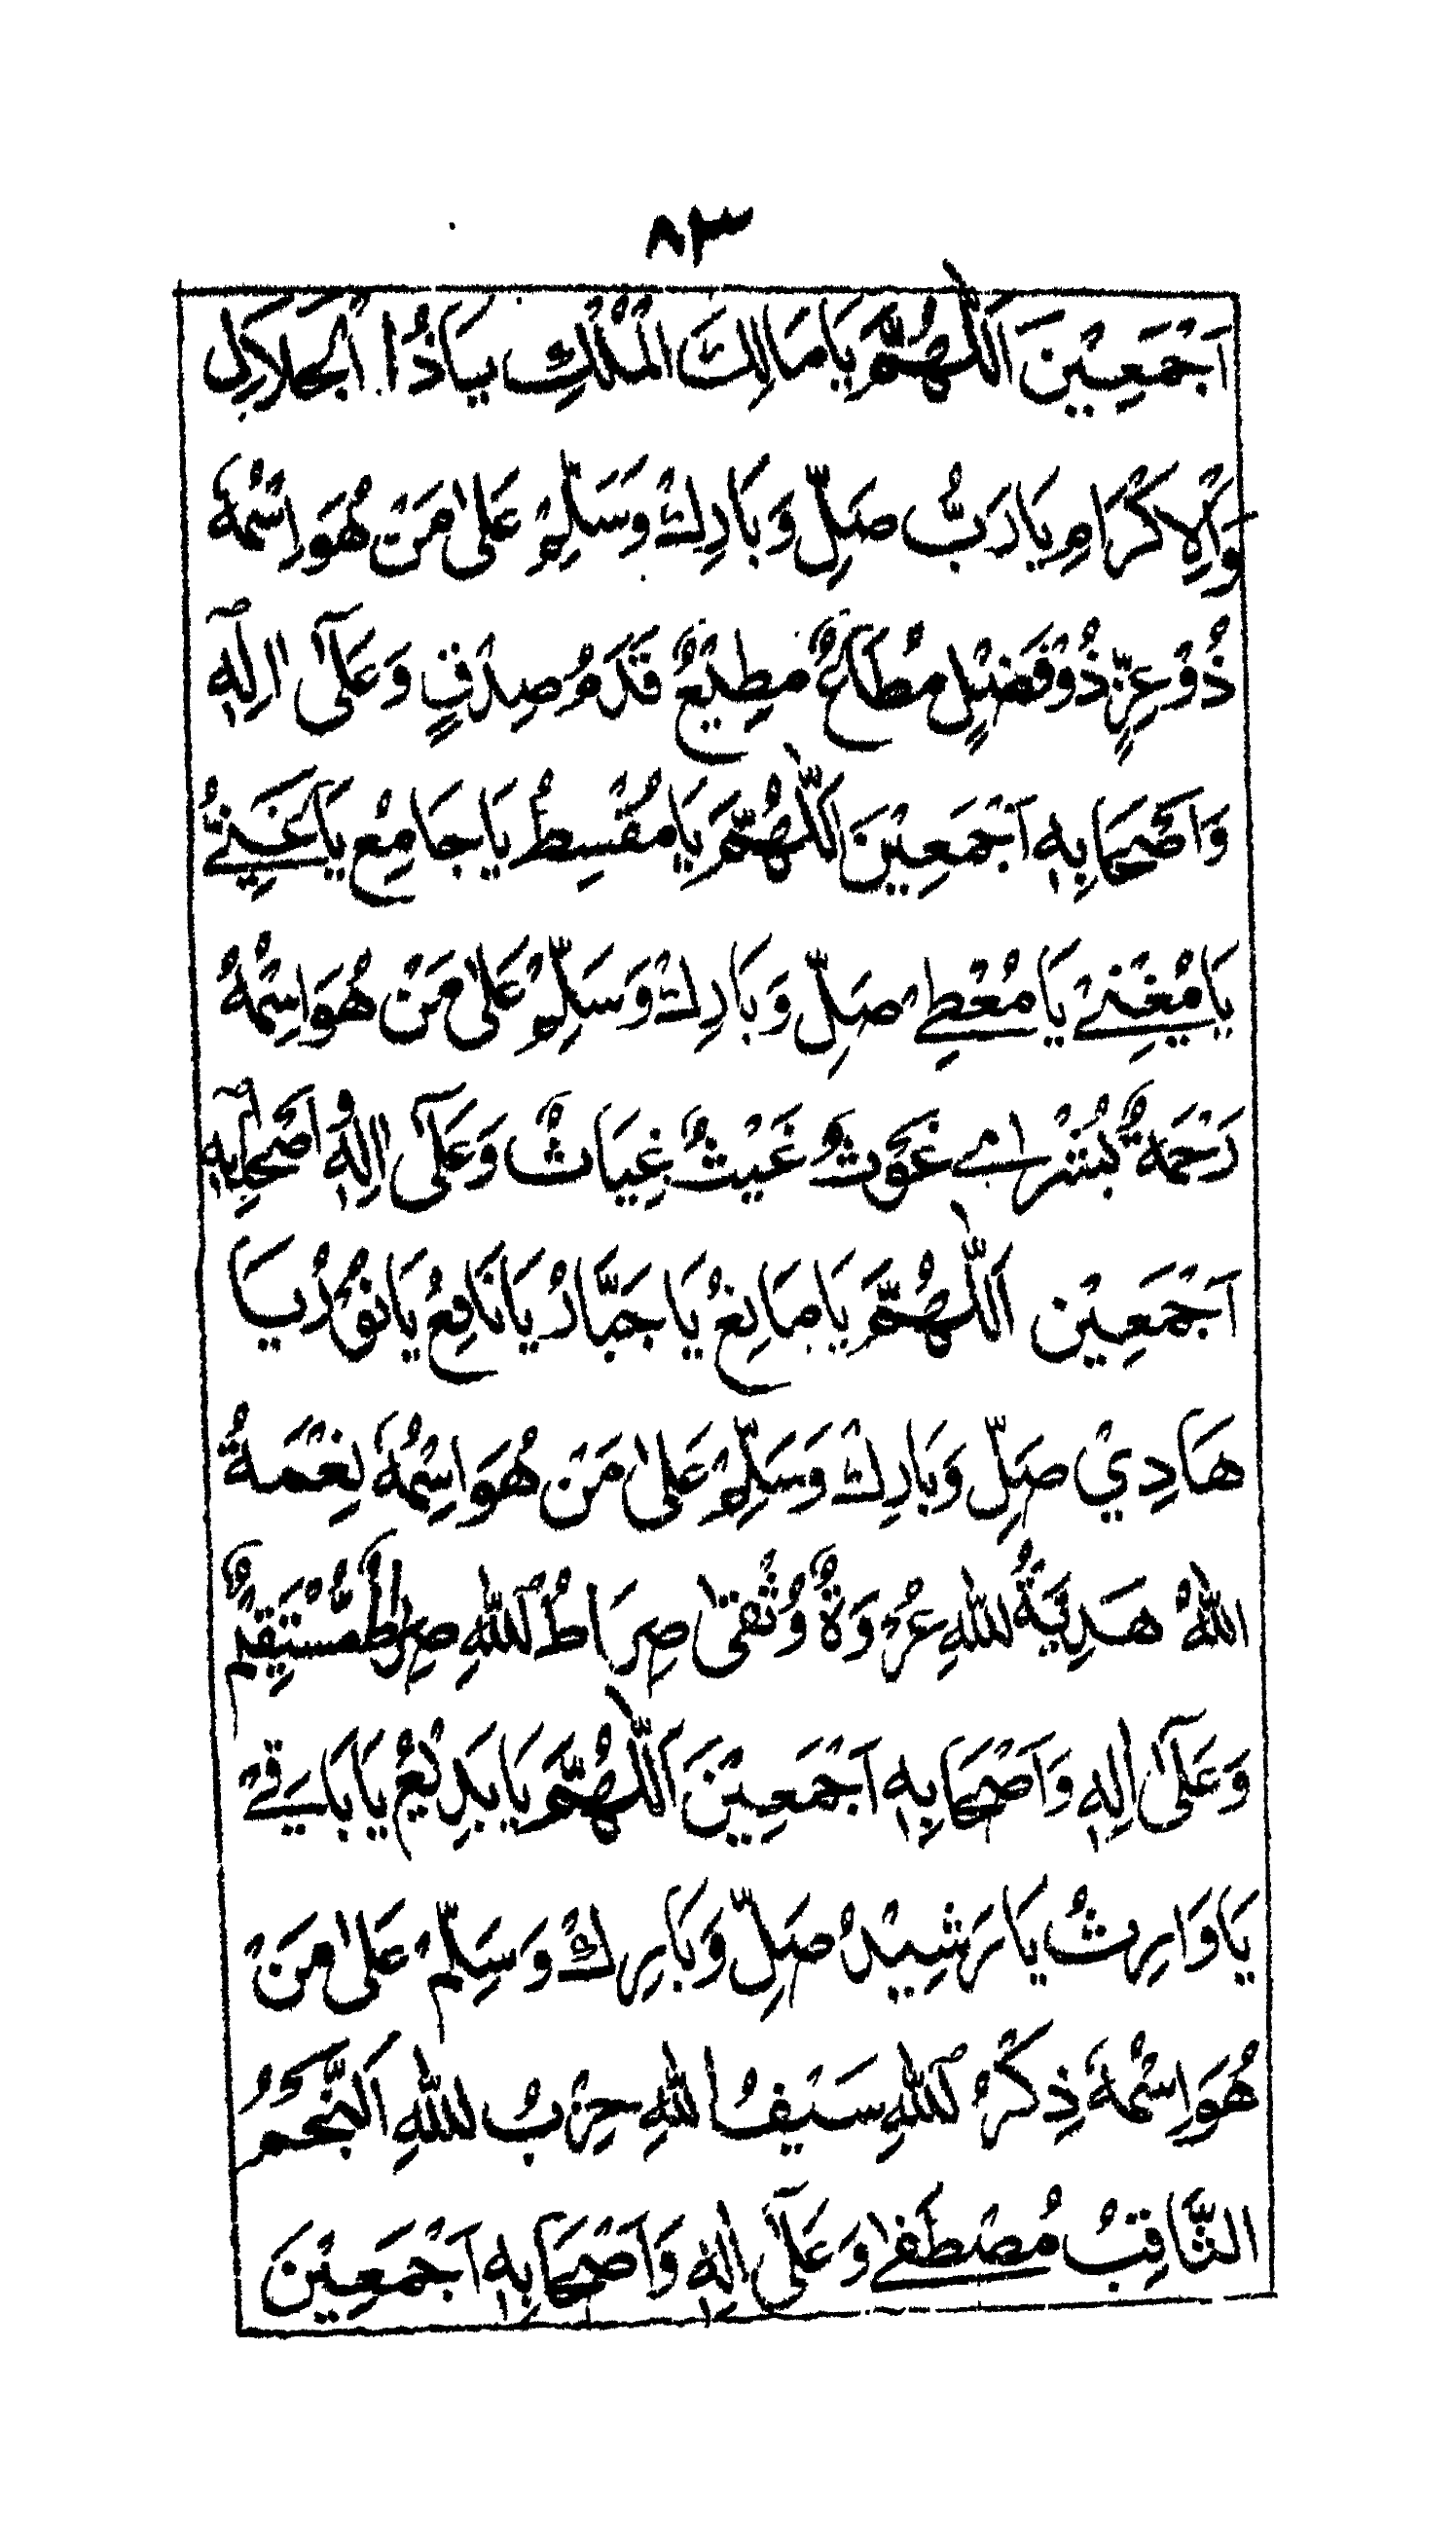 ٨٣
اَجْمَعِيْنَ اَللّٰهُمَّ يَا مَالِكَ الْمُلْكِ يَا ذُا الْجَلَالِ
وَالْاِكْرَامِ يَا رَبُّ صَلِّ وَبَارِكْ وَسَلِّمْ عَلٰى مَنْ هُوَ اسْمُهٗ
ذُوْ عِزٍّ ذُوْ فَضْلٍ مُطَاعٌ مُطِيْعٌ قَدَمُ صِدْقٍ وَعَلٰٓى اٰلِهٖ
وَاَصْحَابِهٖ اَجْمَعِيْنَ اَللّٰهُمَّ يَا مُقْسِطُ يَا جَامِعُ يَا غَنِيُّ
يَا مُغْنِيْ يَا مُعْطِيْ صَلِّ وَبَارِكْ وَسَلِّمْ عَلٰى مَنْ هُوَ اسْمُهٗ
رَحْمَةٌ بُشْرٰے غَوْثٌ غَيْثٌ غِيَاثٌ وَعَلٰٓى اٰلِهٖ وَاَصْحَابِهٖ
اَجْمَعِيْن اَللّٰهُمَّ يَا مَانِعُ يَا جَبَّارُ يَا نَافِعُ يَا نُوْرُ يَا
هَادِيْ صَلِّ وَبَارِكْ وَسَلِّمْ عَلٰى مَنْ هُوَ اسْمُهٗ نِعْمَةُ
اللّٰهِ هَدِيَّةُ اللّٰهِ عُرْوَةٌ وُثْقٰى صِرَاطُ اللّٰهِ صِرَاطٌ مُّسْتَقِيْمٌ
وَعَلٰٓى اٰلِهٖ وَاَصْحَابِهٖ اَجْمَعِيْنَ اَللّٰهُمَّ يَا بَدِيْعُ يَا بَاقِيْ
يَا وَارِثُ يَا رَشِيْدُ صَلِّ وَبَارِكْ وَسَلِّمْ عَلٰى مَنْ
هُوَ اسْمُهٗ ذِكْرُ اللّٰهِ سَيْفُ اللّٰهِ حِزْبُ اللّٰهِ اَلنَّجْمُ
الثَّاقِبُ مُصْطَفٰى وَعَلٰٓى اٰلِهٖ وَاَصْحَابِهٖ اَجْمَعِيْنَ